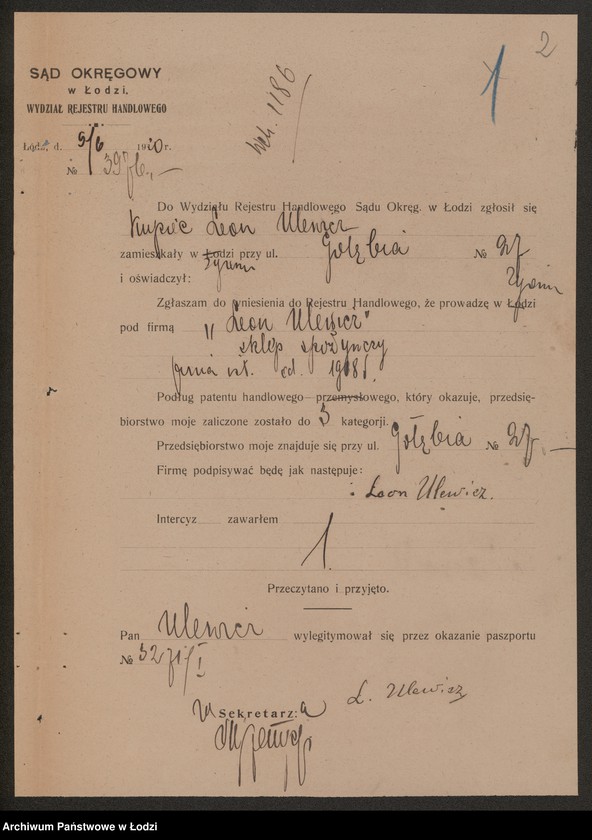 2
1
SĄD OKRĘGOWY
w Łodzi.
WYDZIAŁ REJESTRU HANDLOWEGO
1186
Łódź, d. 5/6 1920 r.
№
Do Wydziału Rejestru Handlowego Sądu Okręg. w Łodzi zgłosił się
Kupiec Leon Ulewicz
zamieszkały w Łodzi przy ul. Gołębia № 27
i oświadczył:
Zgłaszam do wniesienia do Rejestru Handlowego, że prowadzę w Łodzi
pod firmą "Leon Ulewicz"
sklep spożywczy
firma ist. od.
Podług patentu handlowego przemysłowego, który okazuje, przedsię-
biorstwo moje zaliczone zostało do 3 kategorji.
Przedsiębiorstwo moje znajduje się przy ul. Gołębia № 27
Firmę podpisywać będę jak następuje:
: Leon Ulewicz.
Intercyz zawarłem
Przeczytano i przyjęto.
Pan Ulewicz wylegitymował się przez okazanie paszportu
№
L. Ulewicz
Sekretarz:
Archiwum Państwowe w Łodzi